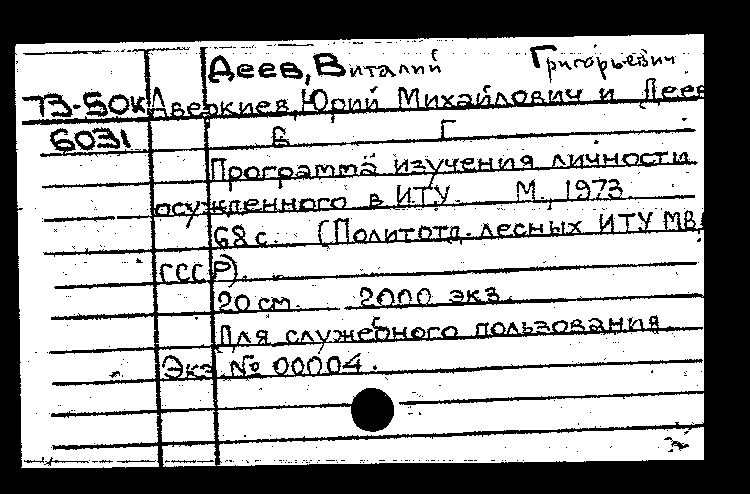 Деев, Виталий Григорьевич
73-50К Аверкиев, Юрий Михайлович и Деев
6031 В Г
Программа изучения личности
осужденного в ИТУ. М., 1973
68 с. (Политотд. лесных ИТУ МВД
СССР).
20 см. 2000 экз.
Для служебного пользования
Экз. № 00004.